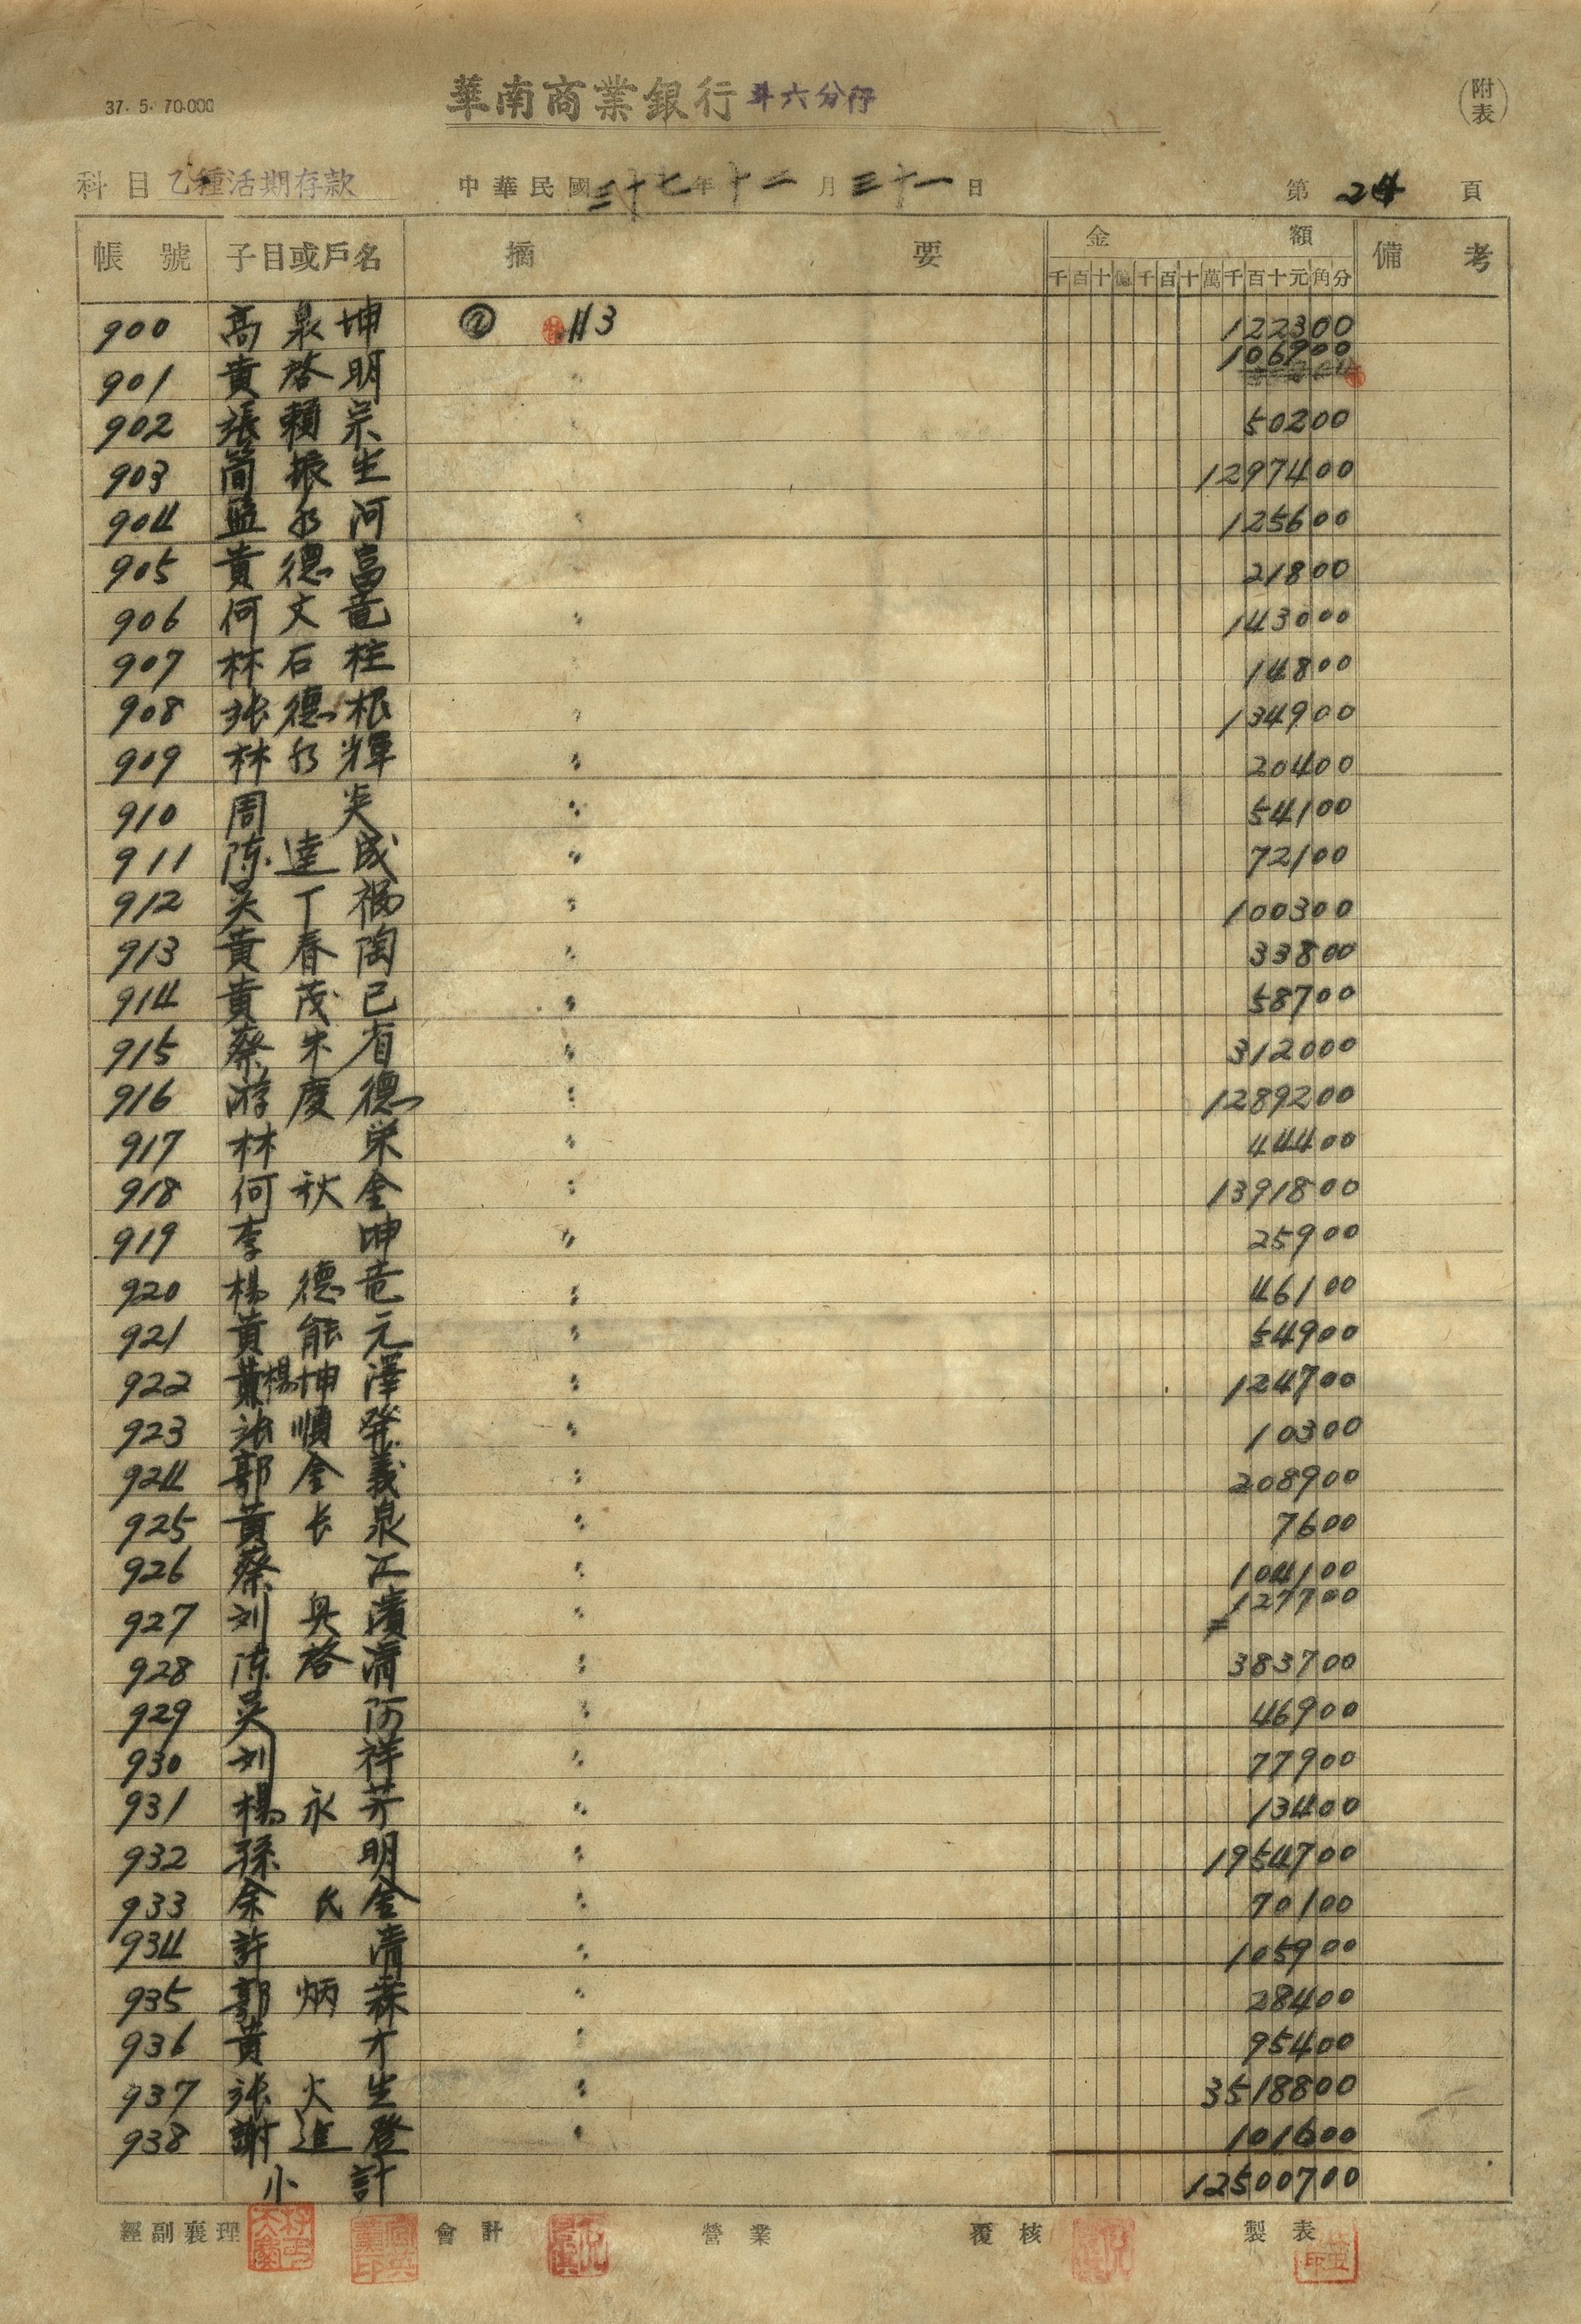 37. 5. 70.000
華南商業銀行 斗六分行
(附表)
科目 乙種活期存款 中華民國三十七年十二月三十一日 第 24 頁
帳號 子目或戶名 摘要 金額 備考
千百十億千百十萬千百十元角分
900 高泉坤 @ 113 122300
901 黃啓明 〃 106900
902 張賴宗 〃 50200
903 簡振生 1297400
904 水河 〃 125600
905 黃德富 21800
906 何文竜 〃 143000
907 林石柱 〃 14800
908 張德根 〃 134900
909 林水輝 〃 20400
910 周炎 〃 54100
911 陳達成 〃 72100
912 吳丁福 〃 100300
913 黃春陶 〃 33800
914 黃茂已 〃 58700
915 蔡朱有 〃 312000
916 游慶德 〃 1289200
917 林栄 〃 44400
918 何秋金 〃 1391800
919 李坤 〃 25900
920 楊德竜 〃 46100
921 黃能元 〃 54900
922 黃楊坤澤 〃 124700
923 張順発 〃 10300
924 郭金義 〃 208900
925 黃長泉 〃 7600
926 蔡江 〃 104100
927 刘濱 〃 127700
928 陳啓清 〃 383700
929 吳阿 〃 46900
930 刘祥 〃 77900
931 楊永芳 〃 13400
932 孫明 〃 1954700
933 余氏金 〃 70100
934 許清 〃 105900
935 郭炳森 〃 28400
936 黃才 〃 95400
937 張火生 〃 3518800
938 謝進登 〃 101600
小計 12500700
經副襄理 會計 營業 覆核 製表